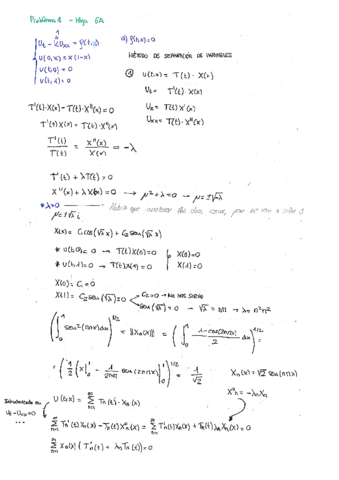 Problema 1 - Hoja 6A
Ut - kUxx = f(t,x)
a) f(t,x)=0
u(0,x) = x(1-x)
u(t,0) = 0
u(t,1) = 0
MÉTODO DE SEPARACIÓN DE VARIABLES
① u(t,x) = T(t) · X(x)
Ut = T'(t) · X(x)
T'(t)·X(x) - T(t)·X''(x) = 0
Ux = T(t) X'(x)
T'(t) X(x) = T(t) · X''(x)
Uxx = T(t) · X''(x)
T'(t)/T(t) = X''(x)/X(x) = -λ
T'(t) + λT(t) = 0
X''(x) + λX(x) = 0 → μ² + λ = 0 → μ = ±√-λ
* λ>0 → Habría que los otros casos, pero
μ = ±√λ i
X(x) = C1 cos(√λ x) + C2 sen(√λ x)
* u(t,0) = 0 → T(t)X(0) = 0 X(0) = 0
* u(t,1) = 0 → T(t)X(1) = 0 X(1) = 0
X(0) = C1 = 0
X(1) = C2 sen(√λ) = 0 C2 = 0 → No nos sirve
sen(√λ) = 0 → √λ = nπ → λ = n²π²
(∫₀¹ sen²(nπx)dx)^1/2 = ||Xn(x)|| = (∫₀¹ (1-cos(2nπx))/2 dx)^1/2
= (1/2 (x|₀¹ - 1/2nπ sen(2nπx)|₀¹))^1/2 = 1/√2 Xn(x) = √2 sen(nπx)
X''n = -λn Xn
Introduciendo en
Ut - Uxx = 0
...
U(t,x) = Σ n=1 ∞ Tn(t) · Xn(x)
Σ n=1 ∞ Tn'(t) Xn(x) - Tn(t) X''n(x) = Σ n=1 ∞ T'n(t) Xn(x) + Tn(t) λn Xn(x) = 0
Σ n=1 ∞ Xn(x) (T'n(t) + λn Tn(t)) = 0